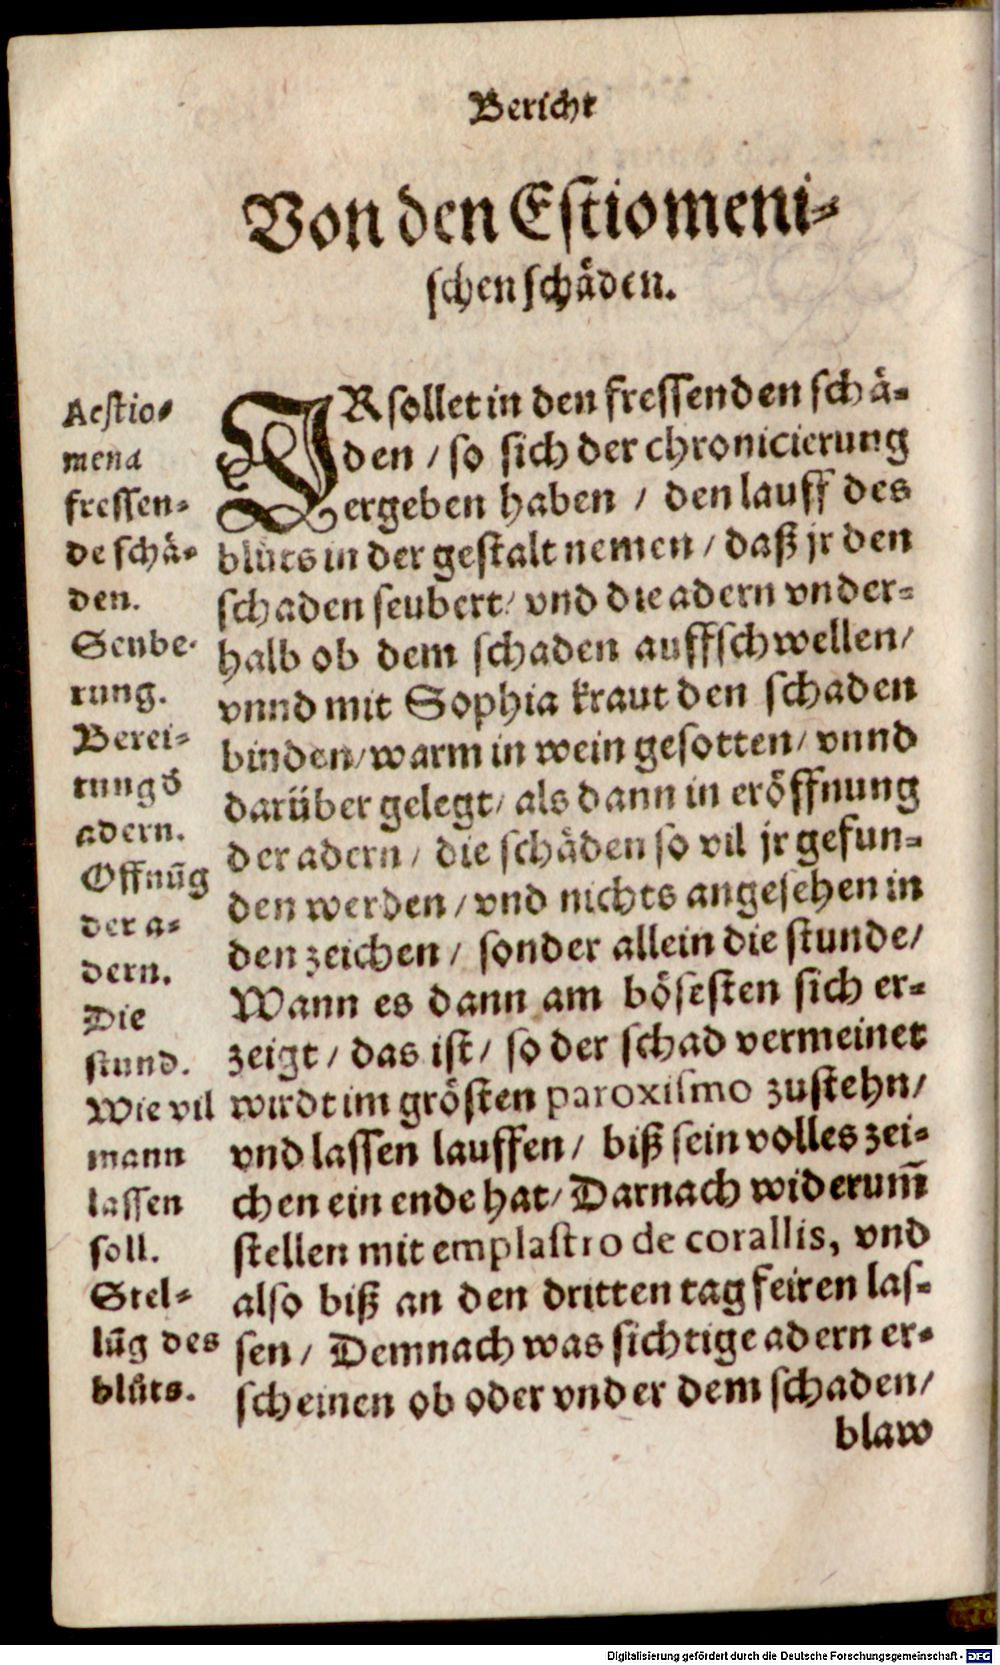 Bericht
Von den Estiomeni-
schen schäden.
Aestio-
mena
fressen-
de schä-
den.
Seube-
rung.
Berei-
tung d̕
adern.
Offnūg
der a-
dern.
Die
stund.
Wie vil
mann
lassen
soll.
Stel-
lūg des
blůts.
IR sollet in den fressenden schä-
den / so sich der chronicierung
ergeben haben / den lauff des
blůts in der gestalt nemen / daß jr den
schaden seubert / vnd die adern vnder-
halb ob dem schaden auffschwellen /
vnnd mit Sophia kraut den schaden
binden / warm in wein gesotten / vnnd
darüber gelegt / als dann in eröffnung
der adern / die schäden so vil jr gefun-
den werden / vnd nichts angesehen in
den zeichen / sonder allein die stunde /
Wann es dann am bösesten sich er-
zeigt / das ist / so der schad vermeinet
wirdt im grösten paroxismo zustehn /
vnd lassen lauffen / biß sein volles zei-
chen ein ende hat / Darnach widerum̄
stellen mit emplastro de corallis, vnd
also biß an den dritten tag feiren las-
sen / Demnach was sichtige adern er-
scheinen ob oder vnder dem schaden /
blaw
Digitalisierung gefördert durch die Deutsche Forschungsgemeinschaft - DFG